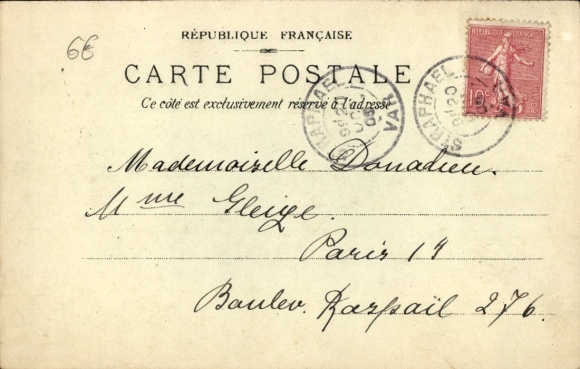 6€
RÉPUBLIQUE FRANÇAISE
CARTE POSTALE
Ce côté est exclusivement réservé à l'adresse
REPUBLIQUE FRANÇAISE
10c
ST RAPHAEL
VAR
20
05
ST RAPHAEL
VAR
20
Mademoiselle Donadieu.
Mme Gleize.
Paris 14
Boulev. Raspail 276.